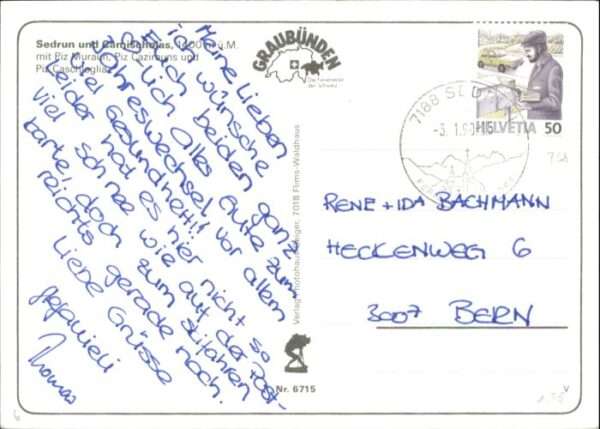 Sedrun und Camischolas, 1400 m ü.M.
mit Piz Muraun, Piz Cazirauns und
Piz Caschleglia
Meine Lieben
ich wünsche
Euch beiden ganz
herzlich alles Gute zum
Jahreswechsel, vor allem
viel Gesundheit!!
Leider hat es hier nicht so
viel Schnee wie auf der Post-
karte, doch zum Skifahren
reichts gerade noch.
Liebe Grüsse
Thomas
Verlag Photohaus Geiger, 7018 Flims-Waldhaus
GRAUBÜNDEN
Die Ferienecke
der Schweiz
7188 SEDRUN
HELVETIA 50
RENE + IDA BACHMANN
HECKENWEG 6
3007 BERN
Nr. 6715
V
6